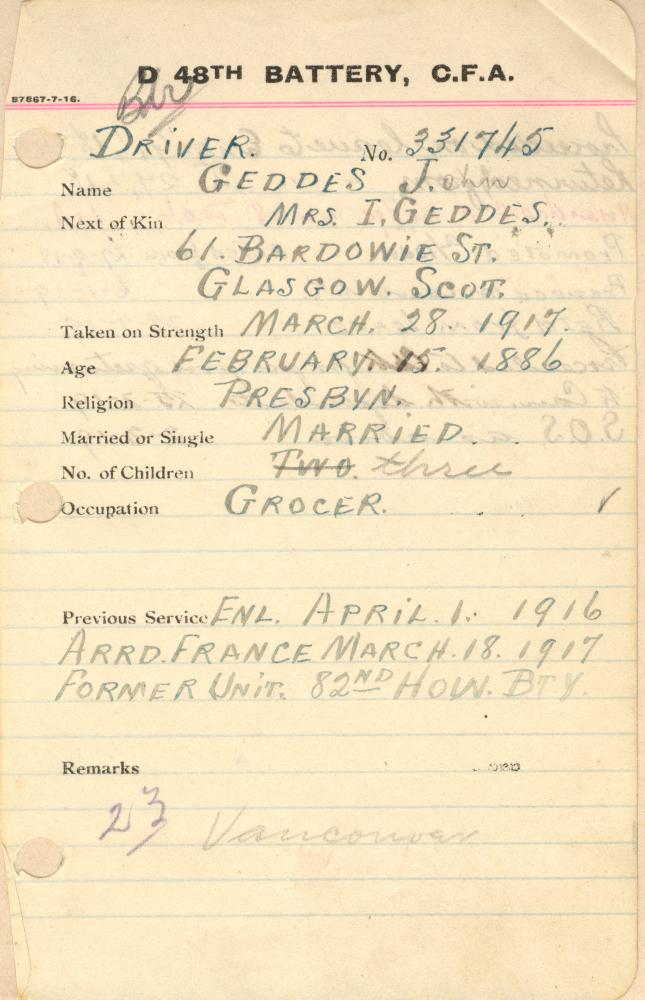 D 48TH BATTERY, C.F.A.
B7867-7-16.
Bdr
DRIVER. No. 331745
Name GEDDES John
Next of Kin MRS. I. GEDDES.
61. BARDOWIE ST.
GLASGOW. SCOT.
Taken on Strength MARCH. 28. 1917.
Age FEBRUARY. 15. 1886
Religion PRESBYN.
Married or Single MARRIED.
No. of Children TWO. three
Occupation GROCER. ✓
Previous Service ENL. APRIL. 1. 1916
ARRD. FRANCE MARCH. 18. 1917
FORMER UNIT. 82ND HOW. BTY.
Remarks
23 Vancouver